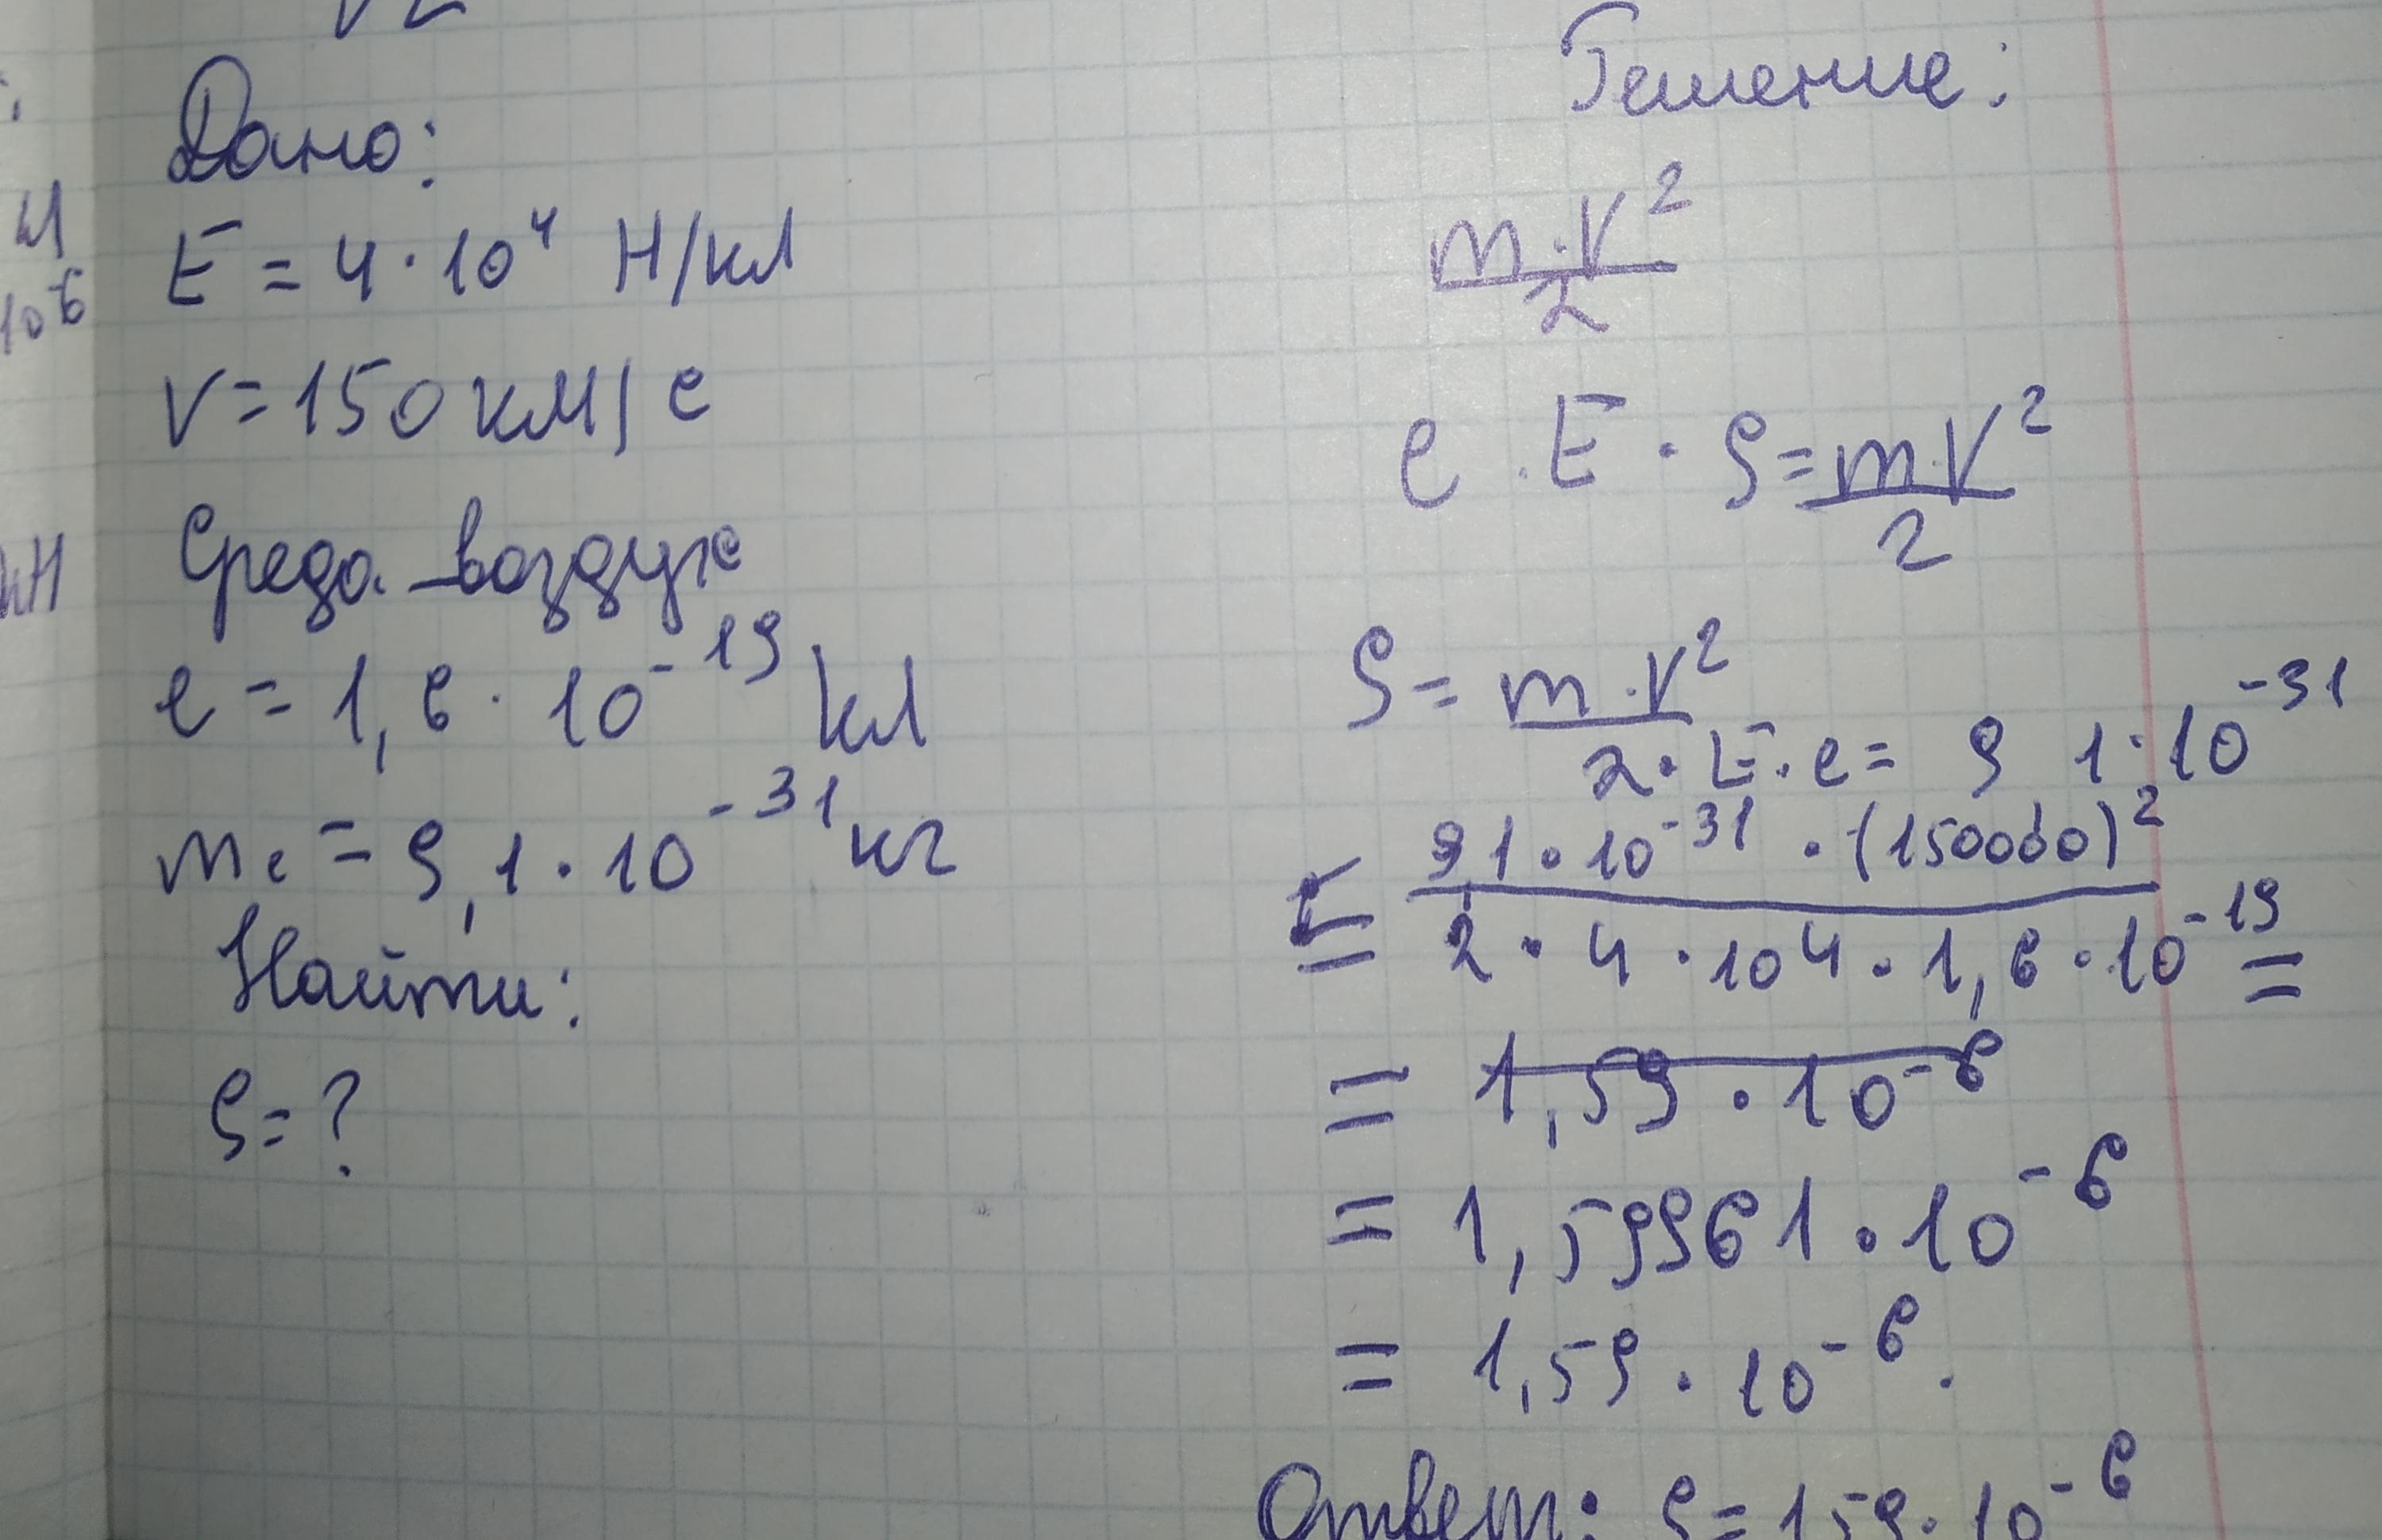 Дано:
E = 4 · 10⁴ Н/кл
V = 150 км/с
Среда - воздух
e = 1,6 · 10⁻¹⁹ кл
mₑ = 9,1 · 10⁻³¹ кг
Найти:
S = ?
Решение:
m · V²
2
e · E · S = m · V²
2
S = m · V²
2 · E · e = 9 1 · 10⁻³¹
= 9,1 · 10⁻³¹ · (150000)²
2 · 4 · 104 · 1,6 · 10⁻¹⁹ =
= 1,59 · 10⁻⁶
= 1,599961 · 10⁻⁶
= 1,59 · 10⁻⁶.
Ответ: S = 1,59 · 10⁻⁶
10⁻⁶